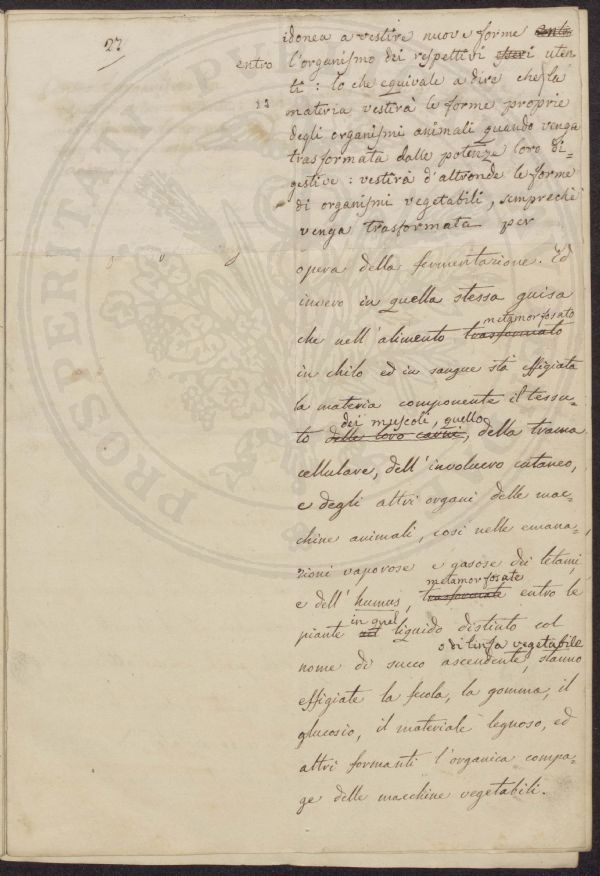 27
idonea a vestire nuove forme entro
entro l'organismo dei respettivi uten-
ti: lo che equivale a dire che la
materia vestirà le forme proprie
degli organismi animali quando venga
trasformata dalle potenze loro di-
gestive: vestirà d'altronde le forme
di organismi vegetabili, sempreché
venga trasformata per
opera della fermentazione. Ed
invero in quella stessa guisa
metamorfosato
che nell'alimento trasformato
in chilo ed in sangue stà effigiata
la materia componente il tessu-
dei muscoli, quello
to delle loro carni, della trama
cellulare, dell'involucro cutaneo,
e degli altri organi delle mac-
chine animali, così nelle emana-
zioni vaporose e gasose dei letami,
metamorfosate
e dell'humus, trasformate entro le
in quel
piante liquido distinto col
o di linfa vegetabile
nome di succo ascendente, stanno
effigiate la fecola, la gomma, il
glucosio, il materiale legnoso, ed
altri formanti l'organica compa-
ge delle macchine vegetabili.
PROSPERITAS PUBLICA